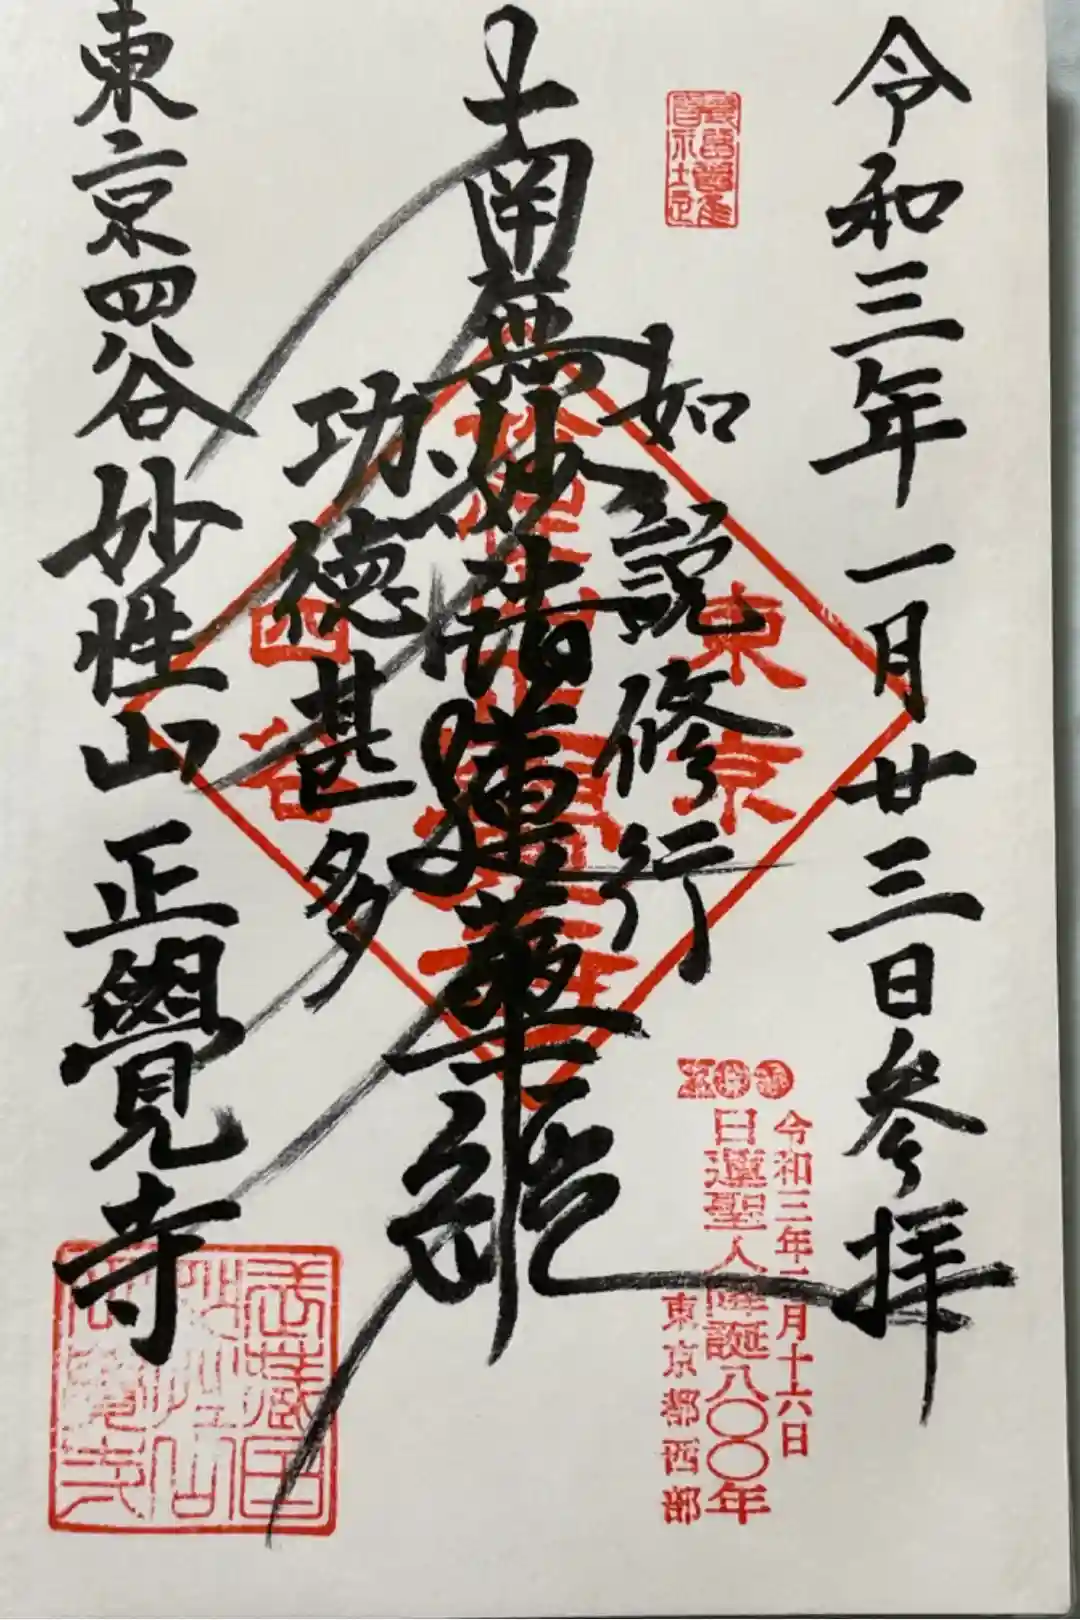 令和三年一月廿三日参拝
如説修行
南無妙法蓮華経
功徳甚多
東京四谷妙性山正覺寺
東京
四谷
令和三年二月十六日
日蓮聖人降誕八〇〇年
東京都西部
武蔵国
妙性山
正覺寺